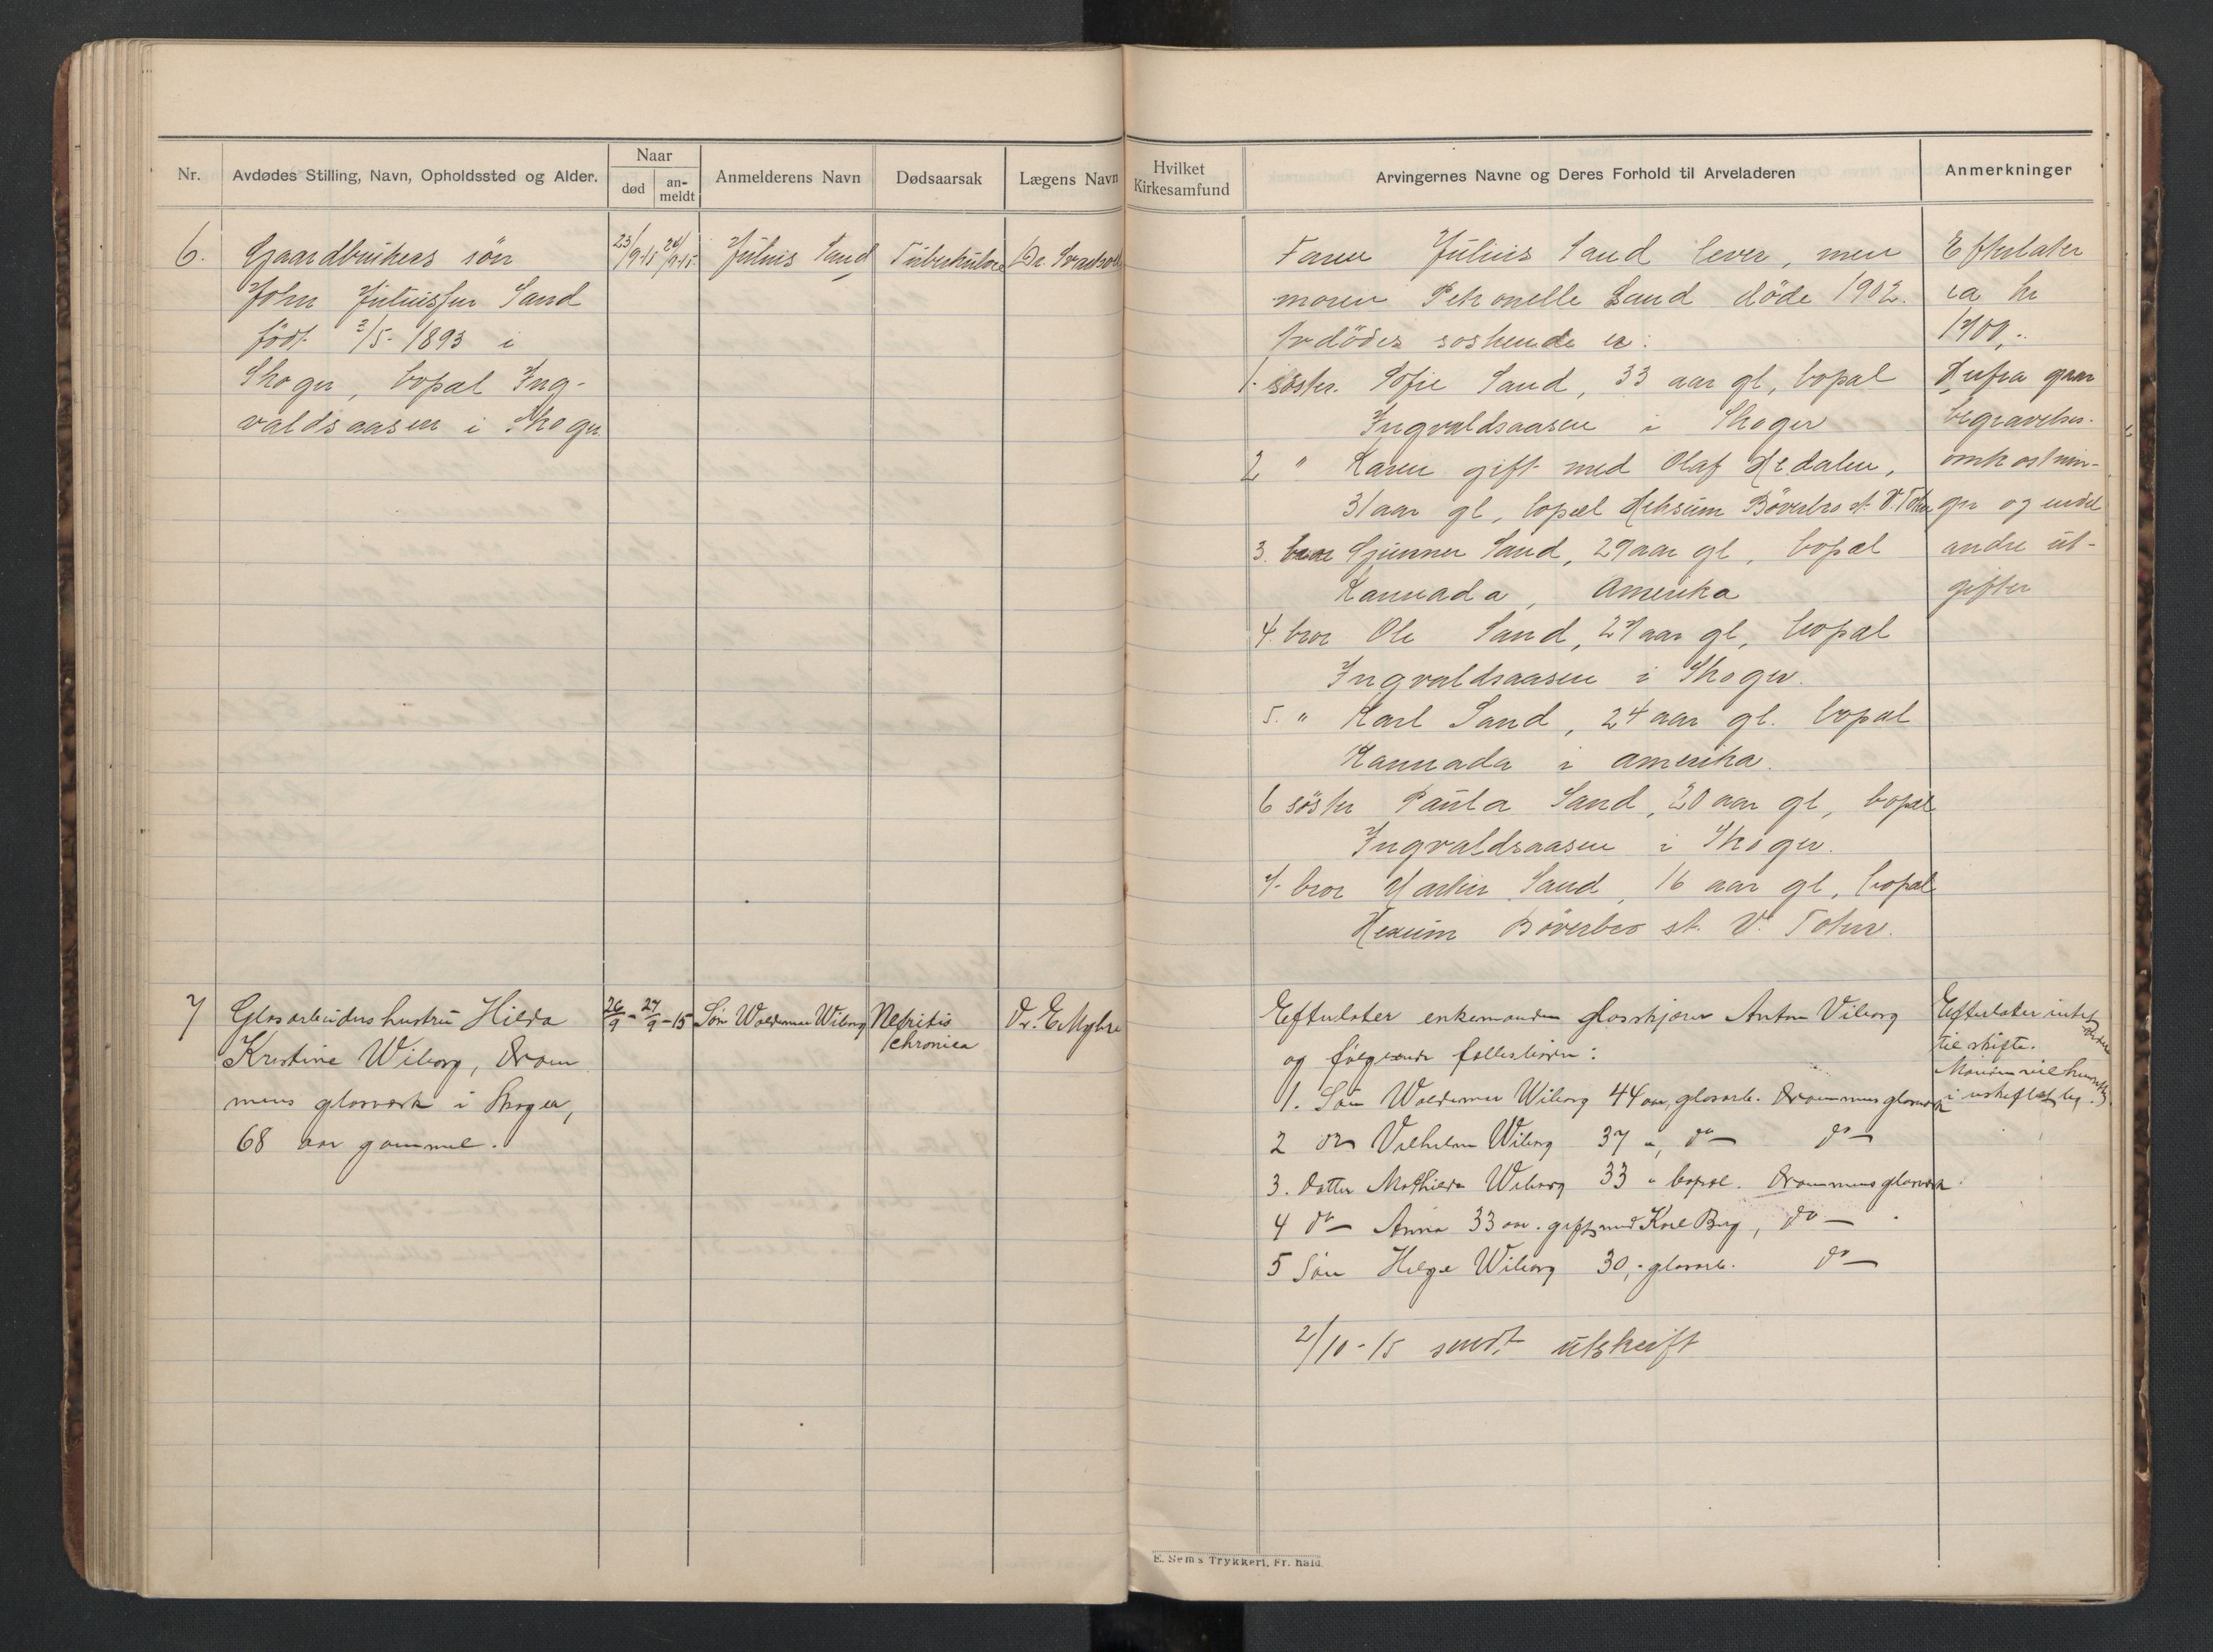 Nr.
Avdødes Stilling, Navn, Opholdssted og Alder.
Naar
død
an-
meldt
Anmelderens Navn
Dødsaarsak
Lægens Navn
Hvilket
Kirkesamfund
Arvingernes Navne og Deres Forhold til Arveladeren
Anmerkninger
6.
Gaardbrukers søn
John Juliussøn Sand
født 2/5-1893 i
Skoger, bopæl Ing-
valdsaasen i Skoger.
23/9-15
24/9-15
Julius Sand
Tuberkulose
Dr.
Faren Julius Sand lever, men
moren Petronelle Sand døde 1902.
Avdødes søskende er:
1. søster. Sofie Sand, 33 aar gl, bopæl
Ingvaldsaasen i Skoger
2 " Karen gift med Olaf Hedalen,
31 aar gl, bopæl Heksum Bøverbro st. V. Toten
3. bror Gunner Sand, 29 aar gl, bopæl
Kannada, Amerika
4. bror Ole Sand, 27 aar gl, bopæl
Ingvaldsaasen i Skoger.
5. " Karl Sand, 24 aar gl. bopæl
Kannada i Amerika.
6 søster Paula Sand, 20 aar gl, bopæl
Ingvaldsaasen i Skoger.
7. bror Sand, 16 aar gl, bopæl
Hexum Bøverbro st. V. Toten.
Efterlater
ca kr
1700,-.
Derfra gaar
begravelses-
omkostnin-
ger og endel
andre ut-
gifter
7
Glasarbeiders hustru Hilda
Kristine Wiborg, Dram
mens glasværk i Skoger,
68 aar gammel.
26/9 - 27/9 - 15
Søn Waldemar Wiborg
Nefritis
chronica
Dr. E. Myhre
Efterlater enkemanden glasskjærer Anton Viborg
og følgende fællesbørn:
1. Søn Waldemar Wiborg 44 aar, glasarb. Drammens glasværk
2 do Vilhelm Wiborg 37 ", do — do —
3. Datter Mathilde Wiborg 33 " bopæl. Drammens glasværk
4 do — Anna 33 aar. gift med Karl Berg, do —
5 Søn Helge Wiborg 30,- glasarb. do —
Efterlater intet
til skifte.
Manden vil hensitte
i uskiftet bo.
2/10-15 sendt utskrift
E. Sem's Trykkeri, Fr. hald.